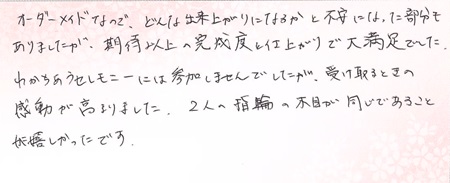 オーダーメイドなので、どんな出来上がりになるかと不安になった部分も
ありましたが、期待以上の完成度と仕上がりで大満足でした。
わかちあうセレモニーには参加しませんでしたが、受け取るときの
感動が高まりました。2人の指輪の木目が同じであること
嬉しかったです。